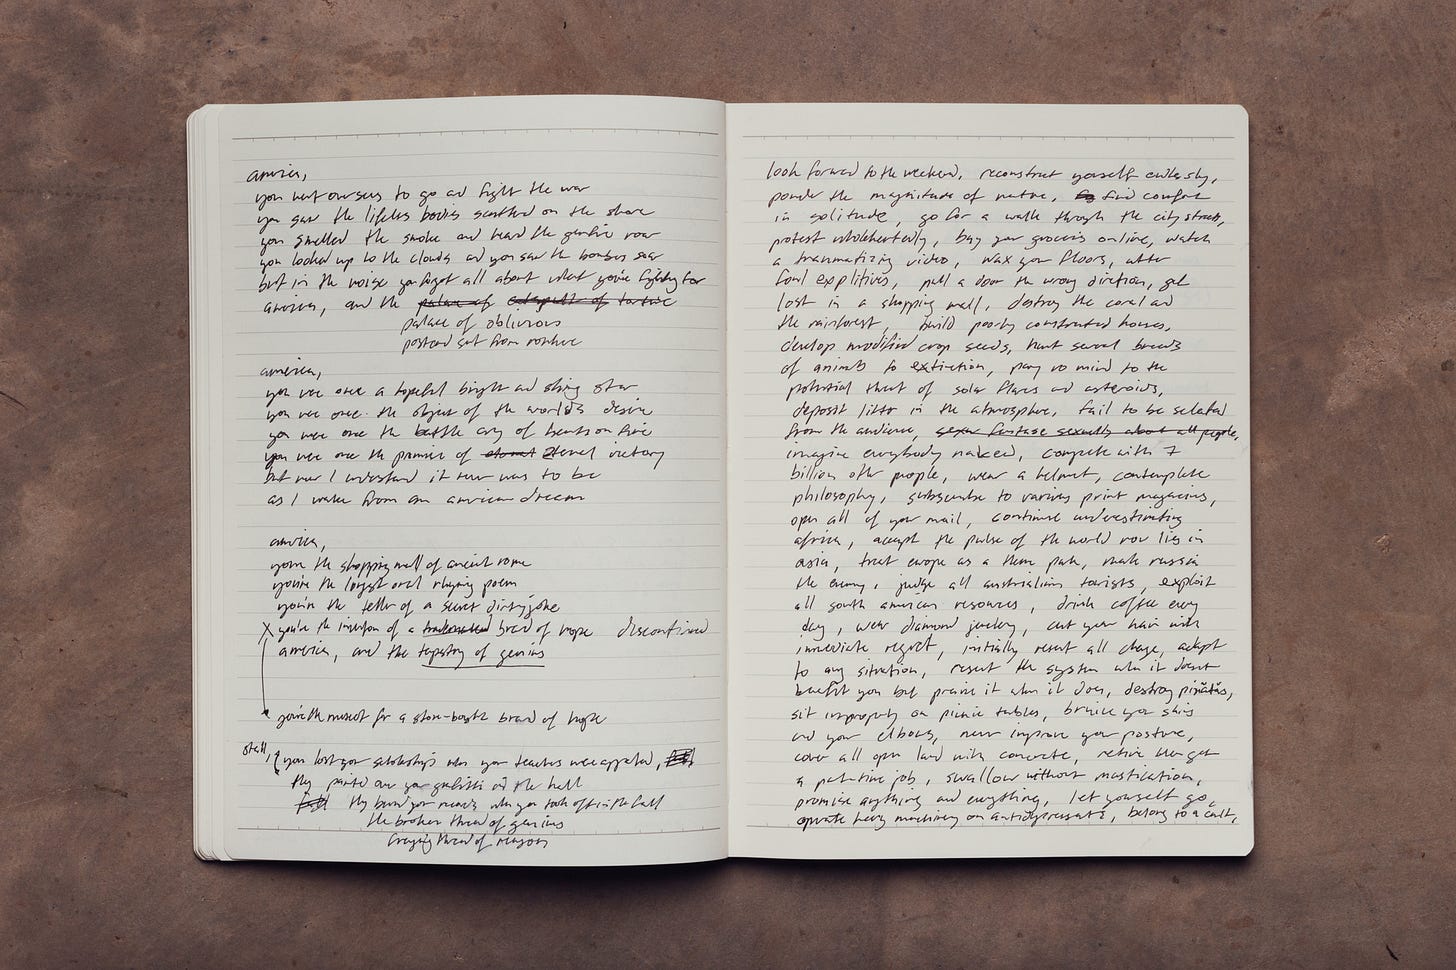 america,
you went overseas to go and fight the war
you saw the lifeless bodies scattered on the shore
you smelled the smoke and heard the gunfire roar
you looked up to the clouds and you saw the bombers soar
but in the noise you forgot all about what you're fighting for
america, and the palace of catapult of torture
palace of oblivious
postcard sent from nowhere
america,
you were once a hopeful bright and shiny star
you were once the object of the world's desire
you were once the battle cry of hearts on fire
you were once the promise of eternal victory
but now I understand it never was to be
as I wake from an american dream
america,
you're the shopping mall of ancient rome
you're the longest oral rhyming poem
you're the teller of a secret dirty joke
you're the invention of a brand of hope discontinued
america, and the tapestry of genius
you're the mascot for a store-bought brand of hope
still, you lost your scholarship when your teachers were
they painted over your graffiti in the hall
they burned your records when you took off in the fall
the broken thread of genius
thread of reason
look forward to the weekend, reconstruct yourself endlessly,
ponder the magnitude of nature, find comfort
in solitude, go for a walk through the city streets,
protest wholeheartedly, buy your groceries online, watch
a traumatizing video, wax your floors, utter
foul expletives, pull a door the wrong direction, get
lost in a shopping mall, destroy the coral and
the rainforest, build poorly constructed houses,
develop modified crop seeds, hunt several breeds
of animals to extinction, pay no mind to the
potential threat of solar flares and asteroids,
deposit litter in the atmosphere, fail to be selected
from the audience, fantasize sexually about all people,
imagine everybody naked, compete with 7
billion other people, wear a helmet, contemplate
philosophy, subscribe to various print magazines,
open all of your mail, continue underestimating
africa, accept the pulse of the world now lies in
asia, treat europe as a theme park, make russia
the enemy, judge all australian tourists, exploit
all south american resources, drink coffee every
day, wear diamond jewelry, cut your hair with
immediate regret, initially resent all change, adapt
to any situation, resent the system when it doesn't
benefit you but praise it when it does, destroy piñatas,
sit improperly on picnic tables, bruise your shins
and your elbows, never improve your posture,
cover all open land with concrete, retire then get
a part-time job, swallow without mastication,
promise anything and everything, let yourself go,
operate heavy machinery on antidepressants, belong to a cult,